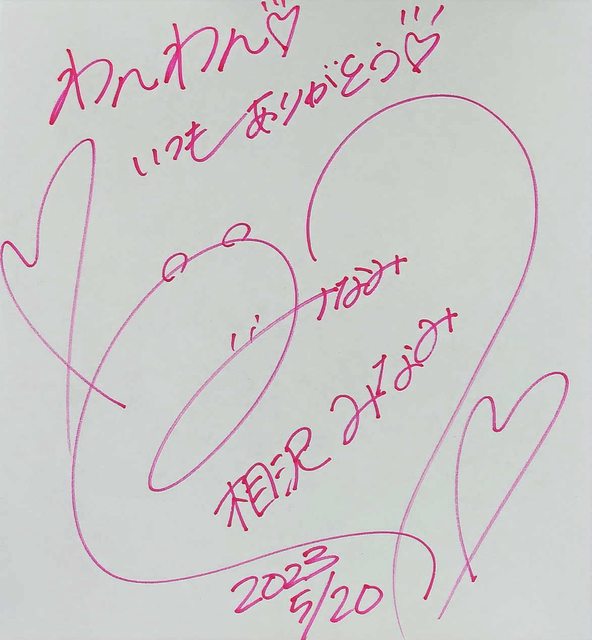 わんわん♡
いつもありがとう♡
みなみ
相沢みなみ
2023
5/20